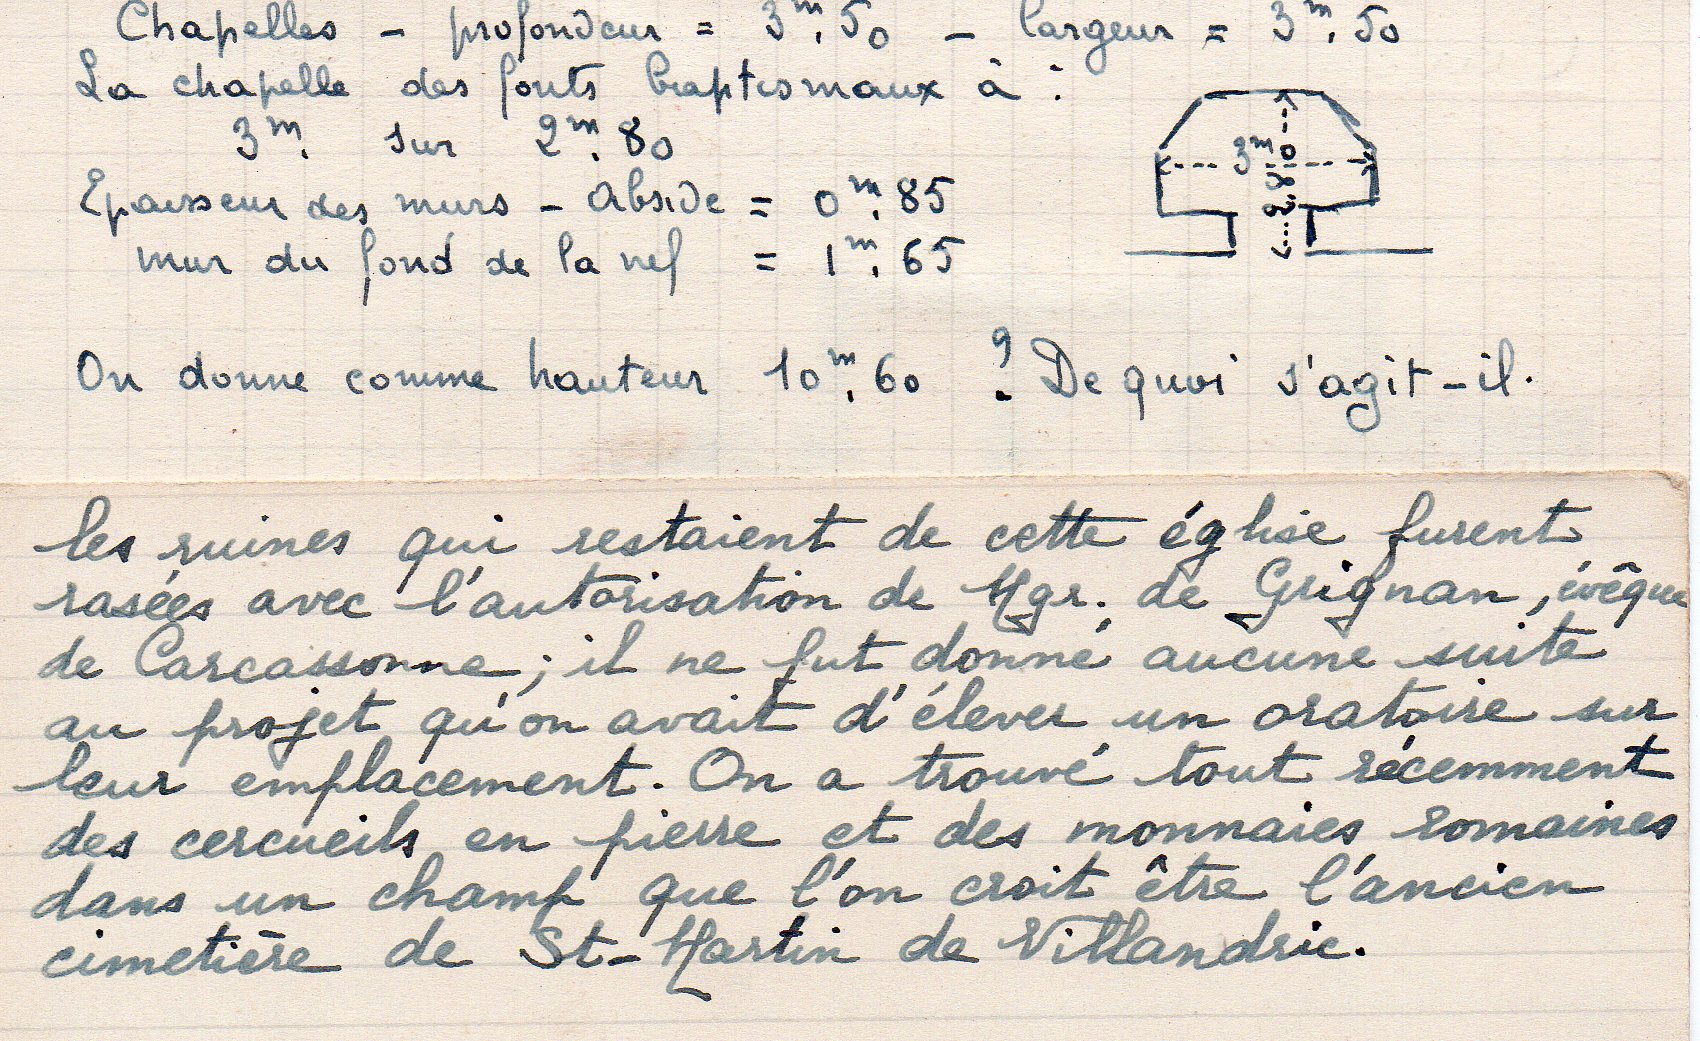 Chapelles - profondeur = 3m,50 - largeur = 3m,50
La chapelle des fonts baptismaux à :
3m. sur 2m,80
3m
2.80
Epaisseur des murs - Abside = 0m,85
mur du fond de la nef = 1m,65
On donne comme hauteur 10m,60 ? De quoi s'agit-il.
les ruines qui restaient de cette église furent
rasées avec l'autorisation de Mgr. de Grignan, évêque
de Carcassonne ; il ne fut donné aucune suite
au projet qu'on avait d'élever un oratoire sur
leur emplacement. On a trouvé tout récemment
des cercueils en pierre et des monnaies romaines
dans un champ que l'on croit être l'ancien
cimetière de St-Martin de Villandric.